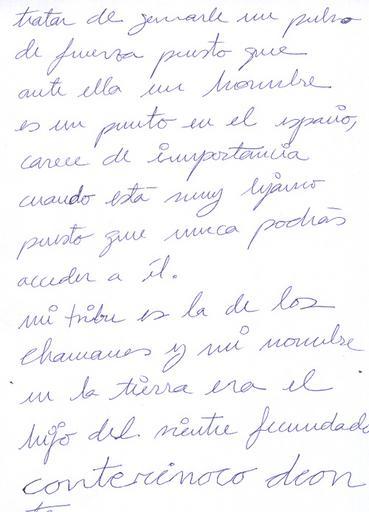 tratar de ganarle un pulso
de fuerza puesto que
ante ella un hombre
es un punto en el espacio,
carece de importancia
cuando está muy lejano
puesto que nunca podrás
acceder a él.
mi tribu es la de los
chamanes y mi nombre
en la tierra era el
hijo del vientre fecundado